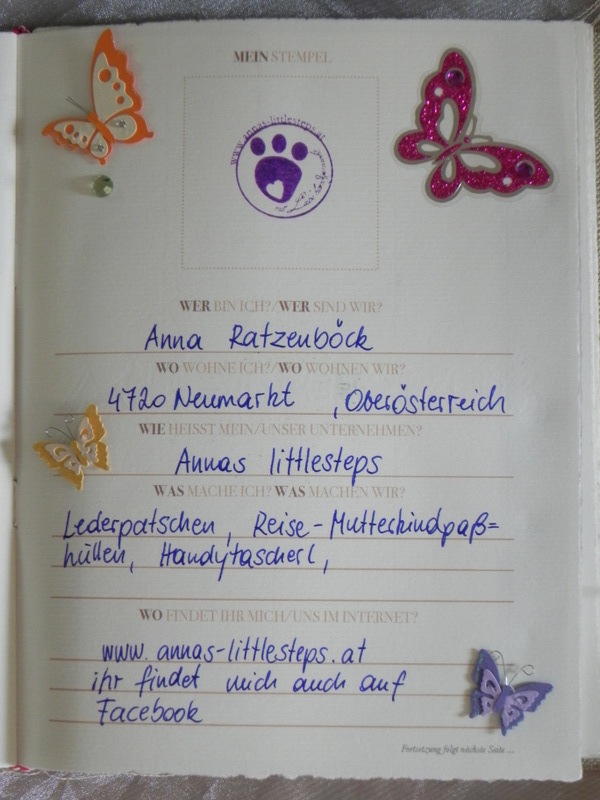 MEIN STEMPEL
www.annas-littlesteps.at
WER BIN ICH?/WER SIND WIR?
Anna Ratzenböck
WO WOHNE ICH?/WO WOHNEN WIR?
4720 Neumarkt , Oberösterreich
WIE HEISST MEIN/UNSER UNTERNEHMEN?
Annas littlesteps
WAS MACHE ICH? WAS MACHEN WIR?
Lederpatschen, Reise-Mutterkindpaß=
hüllen, Handytascherl,
WO FINDET IHR MICH/UNS IM INTERNET?
www.annas-littlesteps.at
ihr findet mich auch auf
Facebook
Fortsetzung folgt nächste Seite ...